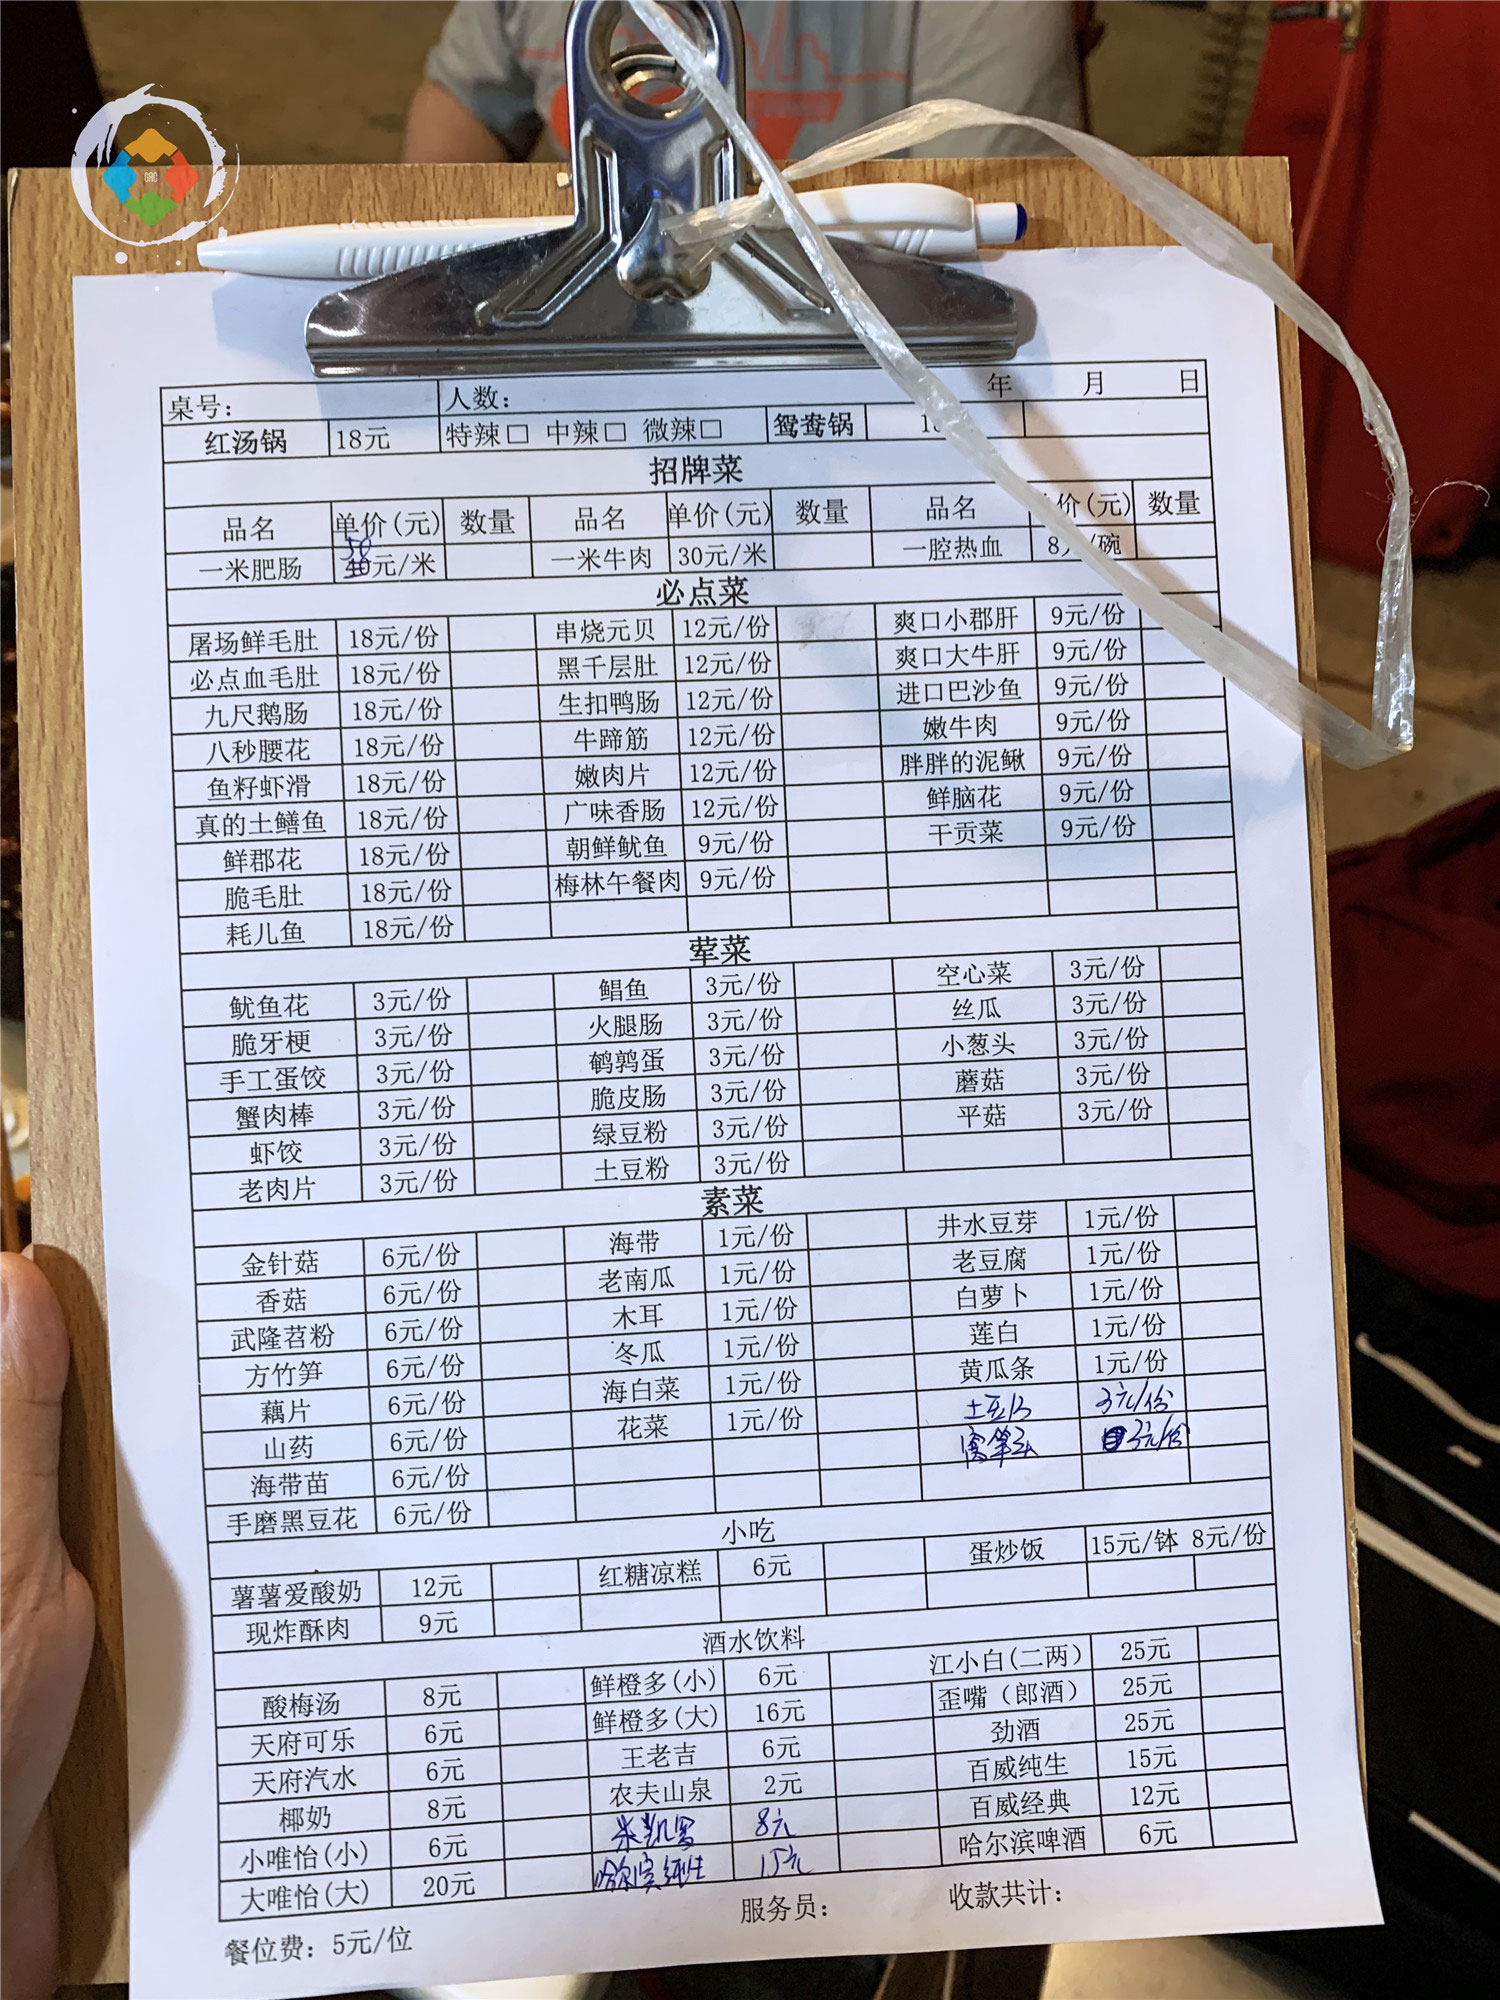 CRC
桌号: 人数: 年 月 日
红汤锅 18元 特辣□ 中辣□ 微辣□ 鸳鸯锅
招牌菜
品名 单价(元) 数量 品名 单价(元) 数量 品名 价(元) 数量
一米肥肠 38元/米 一米牛肉 30元/米 一腔热血 8元/碗
必点菜
屠场鲜毛肚 18元/份 串烧元贝 12元/份 爽口小郡肝 9元/份
必点血毛肚 18元/份 黑千层肚 12元/份 爽口大牛肝 9元/份
九尺鹅肠 18元/份 生扣鸭肠 12元/份 进口巴沙鱼 9元/份
八秒腰花 18元/份 牛蹄筋 12元/份 嫩牛肉 9元/份
鱼籽虾滑 18元/份 嫩肉片 12元/份 胖胖的泥鳅 9元/份
真的土鳝鱼 18元/份 广味香肠 12元/份 鲜脑花 9元/份
鲜郡花 18元/份 朝鲜鱿鱼 9元/份 干贡菜 9元/份
脆毛肚 18元/份 梅林午餐肉 9元/份
耗儿鱼 18元/份
荤菜
鱿鱼花 3元/份 鲳鱼 3元/份 空心菜 3元/份
脆牙梗 3元/份 火腿肠 3元/份 丝瓜 3元/份
手工蛋饺 3元/份 鹌鹑蛋 3元/份 小葱头 3元/份
蟹肉棒 3元/份 脆皮肠 3元/份 蘑菇 3元/份
虾饺 3元/份 绿豆粉 3元/份 平菇 3元/份
老肉片 3元/份 土豆粉 3元/份
素菜
金针菇 6元/份 海带 1元/份 井水豆芽 1元/份
香菇 6元/份 老南瓜 1元/份 老豆腐 1元/份
武隆苕粉 6元/份 木耳 1元/份 白萝卜 1元/份
方竹笋 6元/份 冬瓜 1元/份 莲白 1元/份
藕片 6元/份 海白菜 1元/份 黄瓜条 1元/份
山药 6元/份 花菜 1元/份 土豆片 3元/份
海带苗 6元/份 窝笋头 3元/份
手磨黑豆花 6元/份
小吃
薯薯爱酸奶 12元 红糖凉糕 6元 蛋炒饭 15元/钵 8元/份
现炸酥肉 9元
酒水饮料
酸梅汤 8元 鲜橙多(小) 6元 江小白(二两) 25元
天府可乐 6元 鲜橙多(大) 16元 歪嘴（郎酒） 25元
天府汽水 6元 王老吉 6元 劲酒 25元
椰奶 8元 农夫山泉 2元 百威纯生 15元
小唯怡(小) 6元 米凯罗 8元 百威经典 12元
大唯怡(大) 20元 哈尔滨纯生 15元 哈尔滨啤酒 6元
餐位费: 5元/位 服务员: 收款共计: